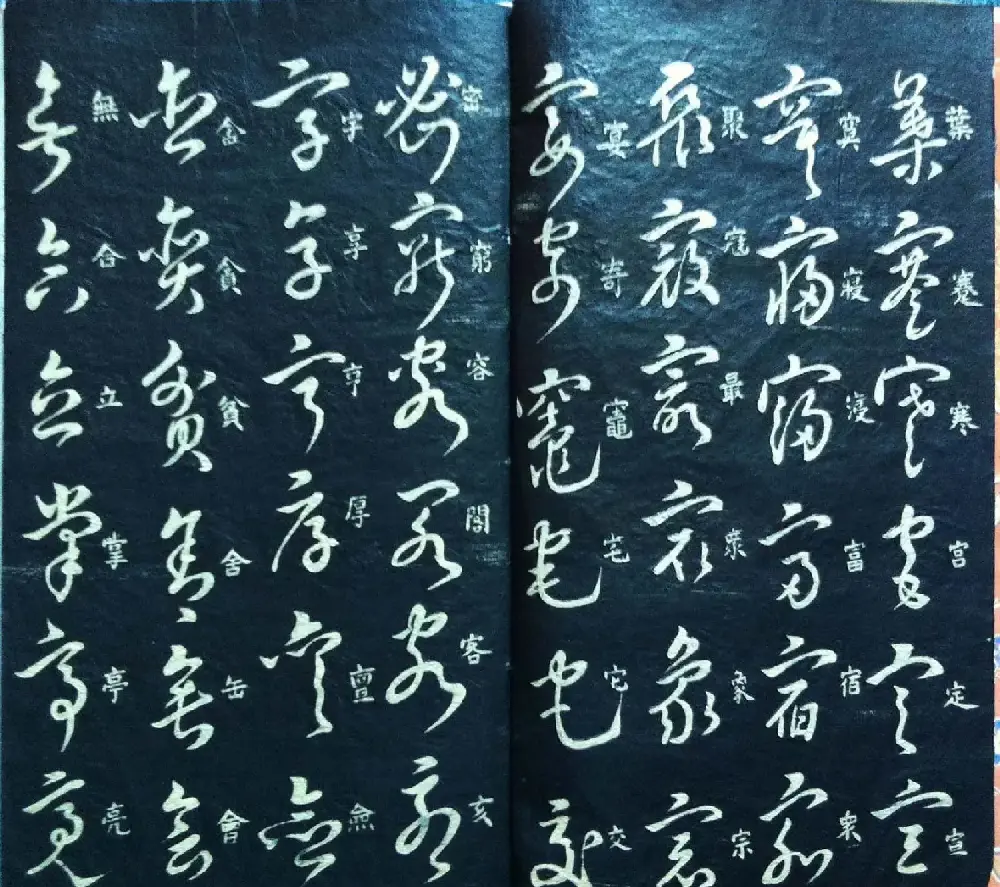 葉蹇寒宫定宣
寞寢寝富宿寡
聚寇最衆象宗
宴寄竈宅它交
密窮容閣客亥
字享亨厚亶僉
含貪貧舍缶會
無合立掌亭亮